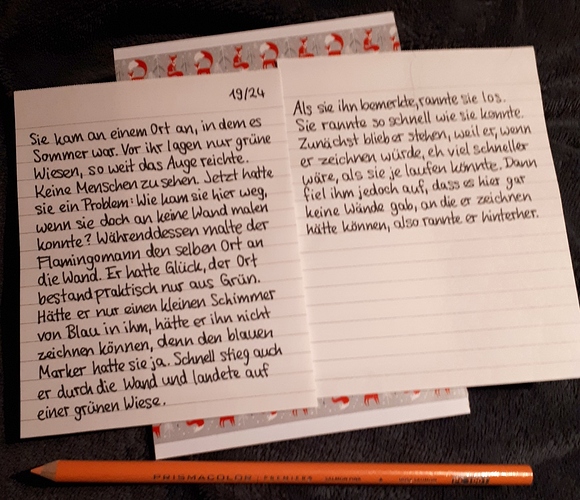 19/24
Sie kam an einem Ort an, in dem es
Sommer war. Vor ihr lagen nur grüne
Wiesen, so weit das Auge reichte.
Keine Menschen zu sehen. Jetzt hatte
sie ein Problem: Wie kam sie hier weg,
wenn sie doch an keine Wand malen
konnte? Währenddessen malte der
Flamingomann den selben Ort an
die Wand. Er hatte Glück, der Ort
bestand praktisch nur aus Grün.
Hätte er nur einen kleinen Schimmer
von Blau in ihm, hätte er ihn nicht
zeichnen können, denn den blauen
Marker hatte sie ja. Schnell stieg auch
er durch die Wand und landete auf
einer grünen Wiese.
Als sie ihn bemerkte, rannte sie los.
Sie rannte so schnell wie sie konnte.
Zunächst blieb er stehen, weil er, wenn
er zeichnen würde, eh viel schneller
wäre, als sie je laufen könnte. Dann
fiel ihm jedoch auf, dass es hier gar
keine Wände gab, an die er zeichnen
hätte können, also rannte er hinterher.
PRISMACOLOR PREMIER